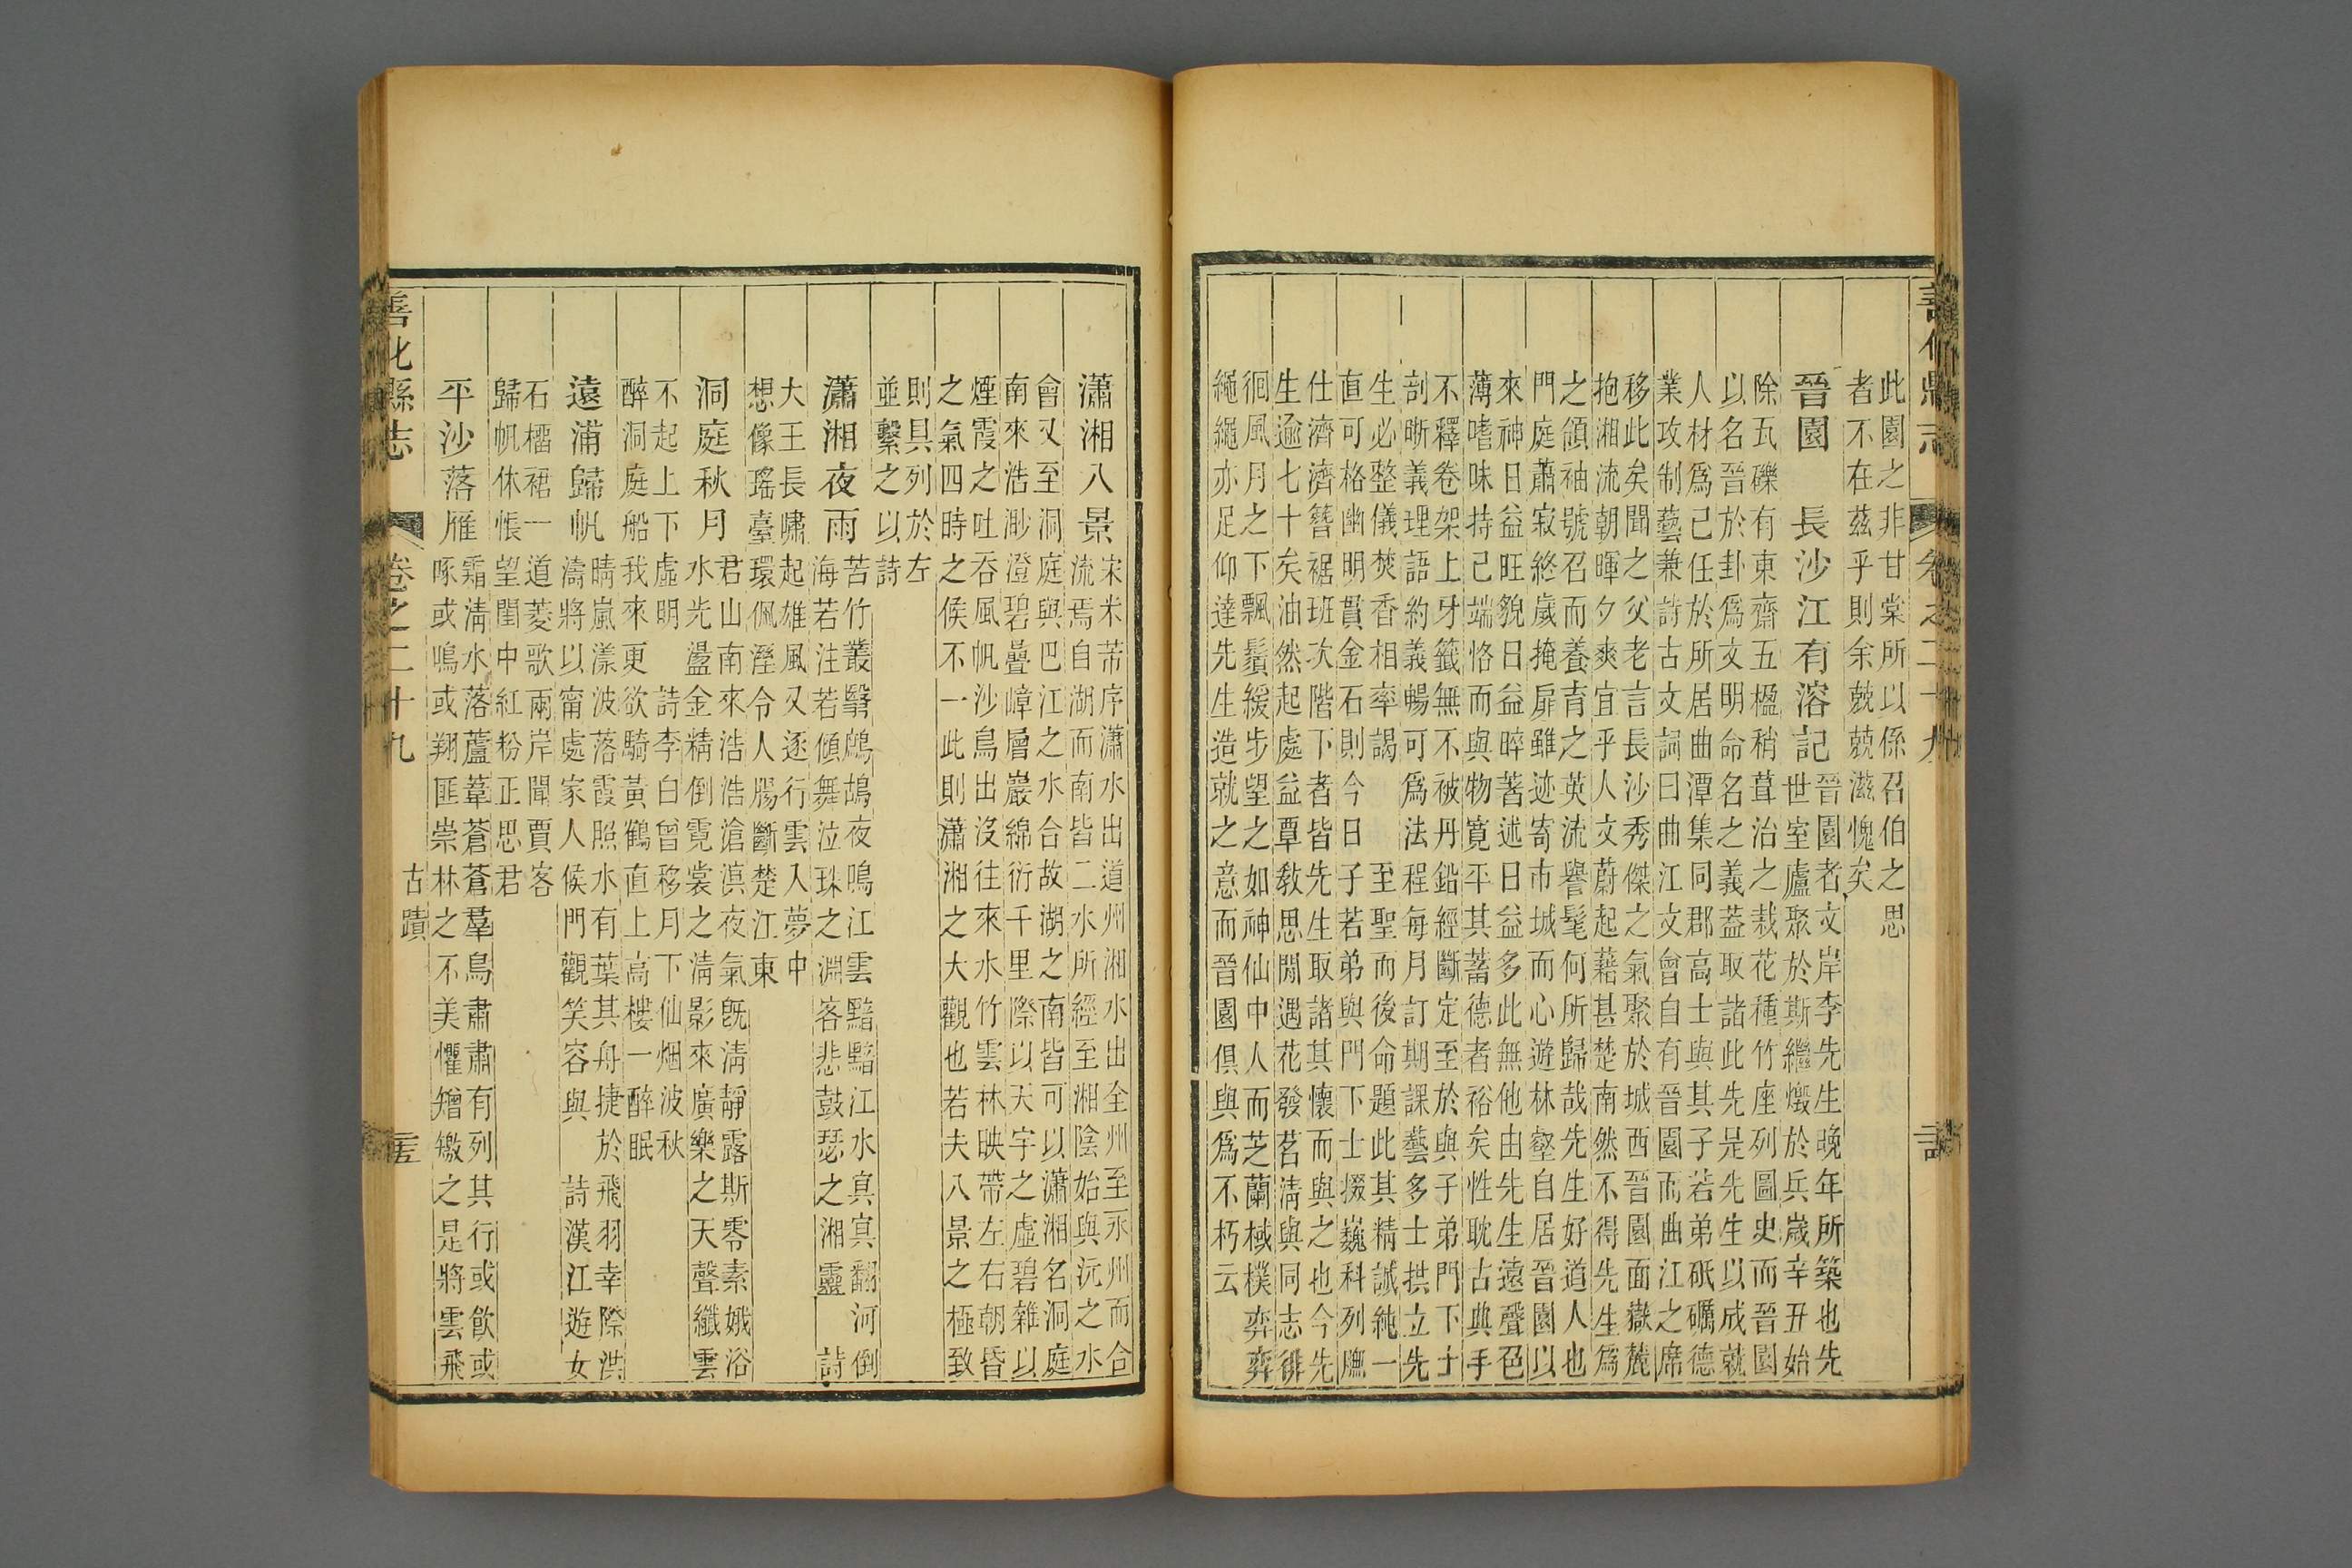 善化縣志 卷之二十九
此園之非甘棠所以係召伯之思
者不在茲乎則余兢兢滋愧矣
晉園 長沙江有溶記
晉園者文岸李先生晚年所築也先
世室廬聚於斯繼燬於兵歲辛丑始
除瓦礫有東齋五楹稍葺治之栽花種竹座列圖史而晉園
以名晉於卦爲文明命名之義蓋取諸此先是先生以成就
人材爲己任於所居曲潭集同郡高士與其子若弟砥礪德
業攻制藝兼詩古文詞曰曲江文會自有晉園而曲江之席
移此矣聞之父老言長沙秀傑之氣聚於城西晉園面嶽麓
抱湘流朝暉夕爽宜乎人文蔚起藉甚楚南然不得先生爲
之領袖號召而養育之英流譽髦何所歸哉先生好道人也
門庭蕭寂終歲掩扉雖迹寄市城而心遊林壑自居晉園以
來神日益旺貌日益晬著述日益多此無他由先生遠聲色
薄嗜味持己端恪而與物寬平其蓄德者裕矣性耽古典手
不釋卷架上牙籤無不被丹鉛經斷定至於與子弟門下士
剖晰義理語約義暢可爲法程每月訂期課藝多士拱立先
生必整儀焚香相率謁 至聖而後命題此其精誠純一
直可格幽明貫金石則今日子若弟與門下士掇巍科列膴
仕濟濟簪裾班次階下者皆先生取諸其懷而與之也今先
生逾七十矣油然起處益覃敎思閒遇花發茗淸與同志徘
徊風月之下飄鬚緩步望之如神仙中人而芝蘭棫樸弈弈
繩繩亦足仰達先生造就之意而晉園俱與爲不朽云
瀟湘八景
宋米芾序瀟水出道州湘水出全州至永州而合
流焉自湖而南皆二水所經至湘陰始與沅之水
會又至洞庭與巴江之水合故湖之南皆可以瀟湘名洞庭
南來浩渺澄碧疊嶂層巖綿衍千里際以天宇之虛碧雜以
煙霞之吐吞風帆沙鳥出沒往來水竹雲林映帶左右朝昏
之氣四時之候不一此則瀟湘之大觀也若夫八景之極致
則具列於左
並繫之以詩
瀟湘夜雨
苦竹叢翳鷓鴣夜鳴江雲黯黯江水冥冥翻河倒
海若注若傾舞泣珠之淵客悲鼓瑟之湘靈 詩
大王長嘯起雄風又逐行雲入夢中
想像瑤臺環佩溼令人腸斷楚江東
洞庭秋月
君山南來浩浩滄溟夜氣旣淸靜露斯零素娥浴
水光盪金精倒霓裳之淸影來廣樂之天聲纖雲
不起上下虛明 詩李白曾移月下仙烟波秋
醉洞庭船我來更欲騎黃鶴直上高樓一醉眠
遠浦歸帆
晴嵐漾波落霞照水有葉其舟捷於飛羽幸際洪
濤將以甯處家人候門觀笑容與 詩漢江遊女
石榴裙一道菱歌兩岸聞賈客
歸帆休悵望閨中紅粉正思君
平沙落雁
霜淸水落蘆葦蒼蒼羣鳥肅肅有列其行或飮或
啄或鳴或翔匪崇林之不美懼矰繳之是將雲飛
善化縣志 卷之二十九 古蹟